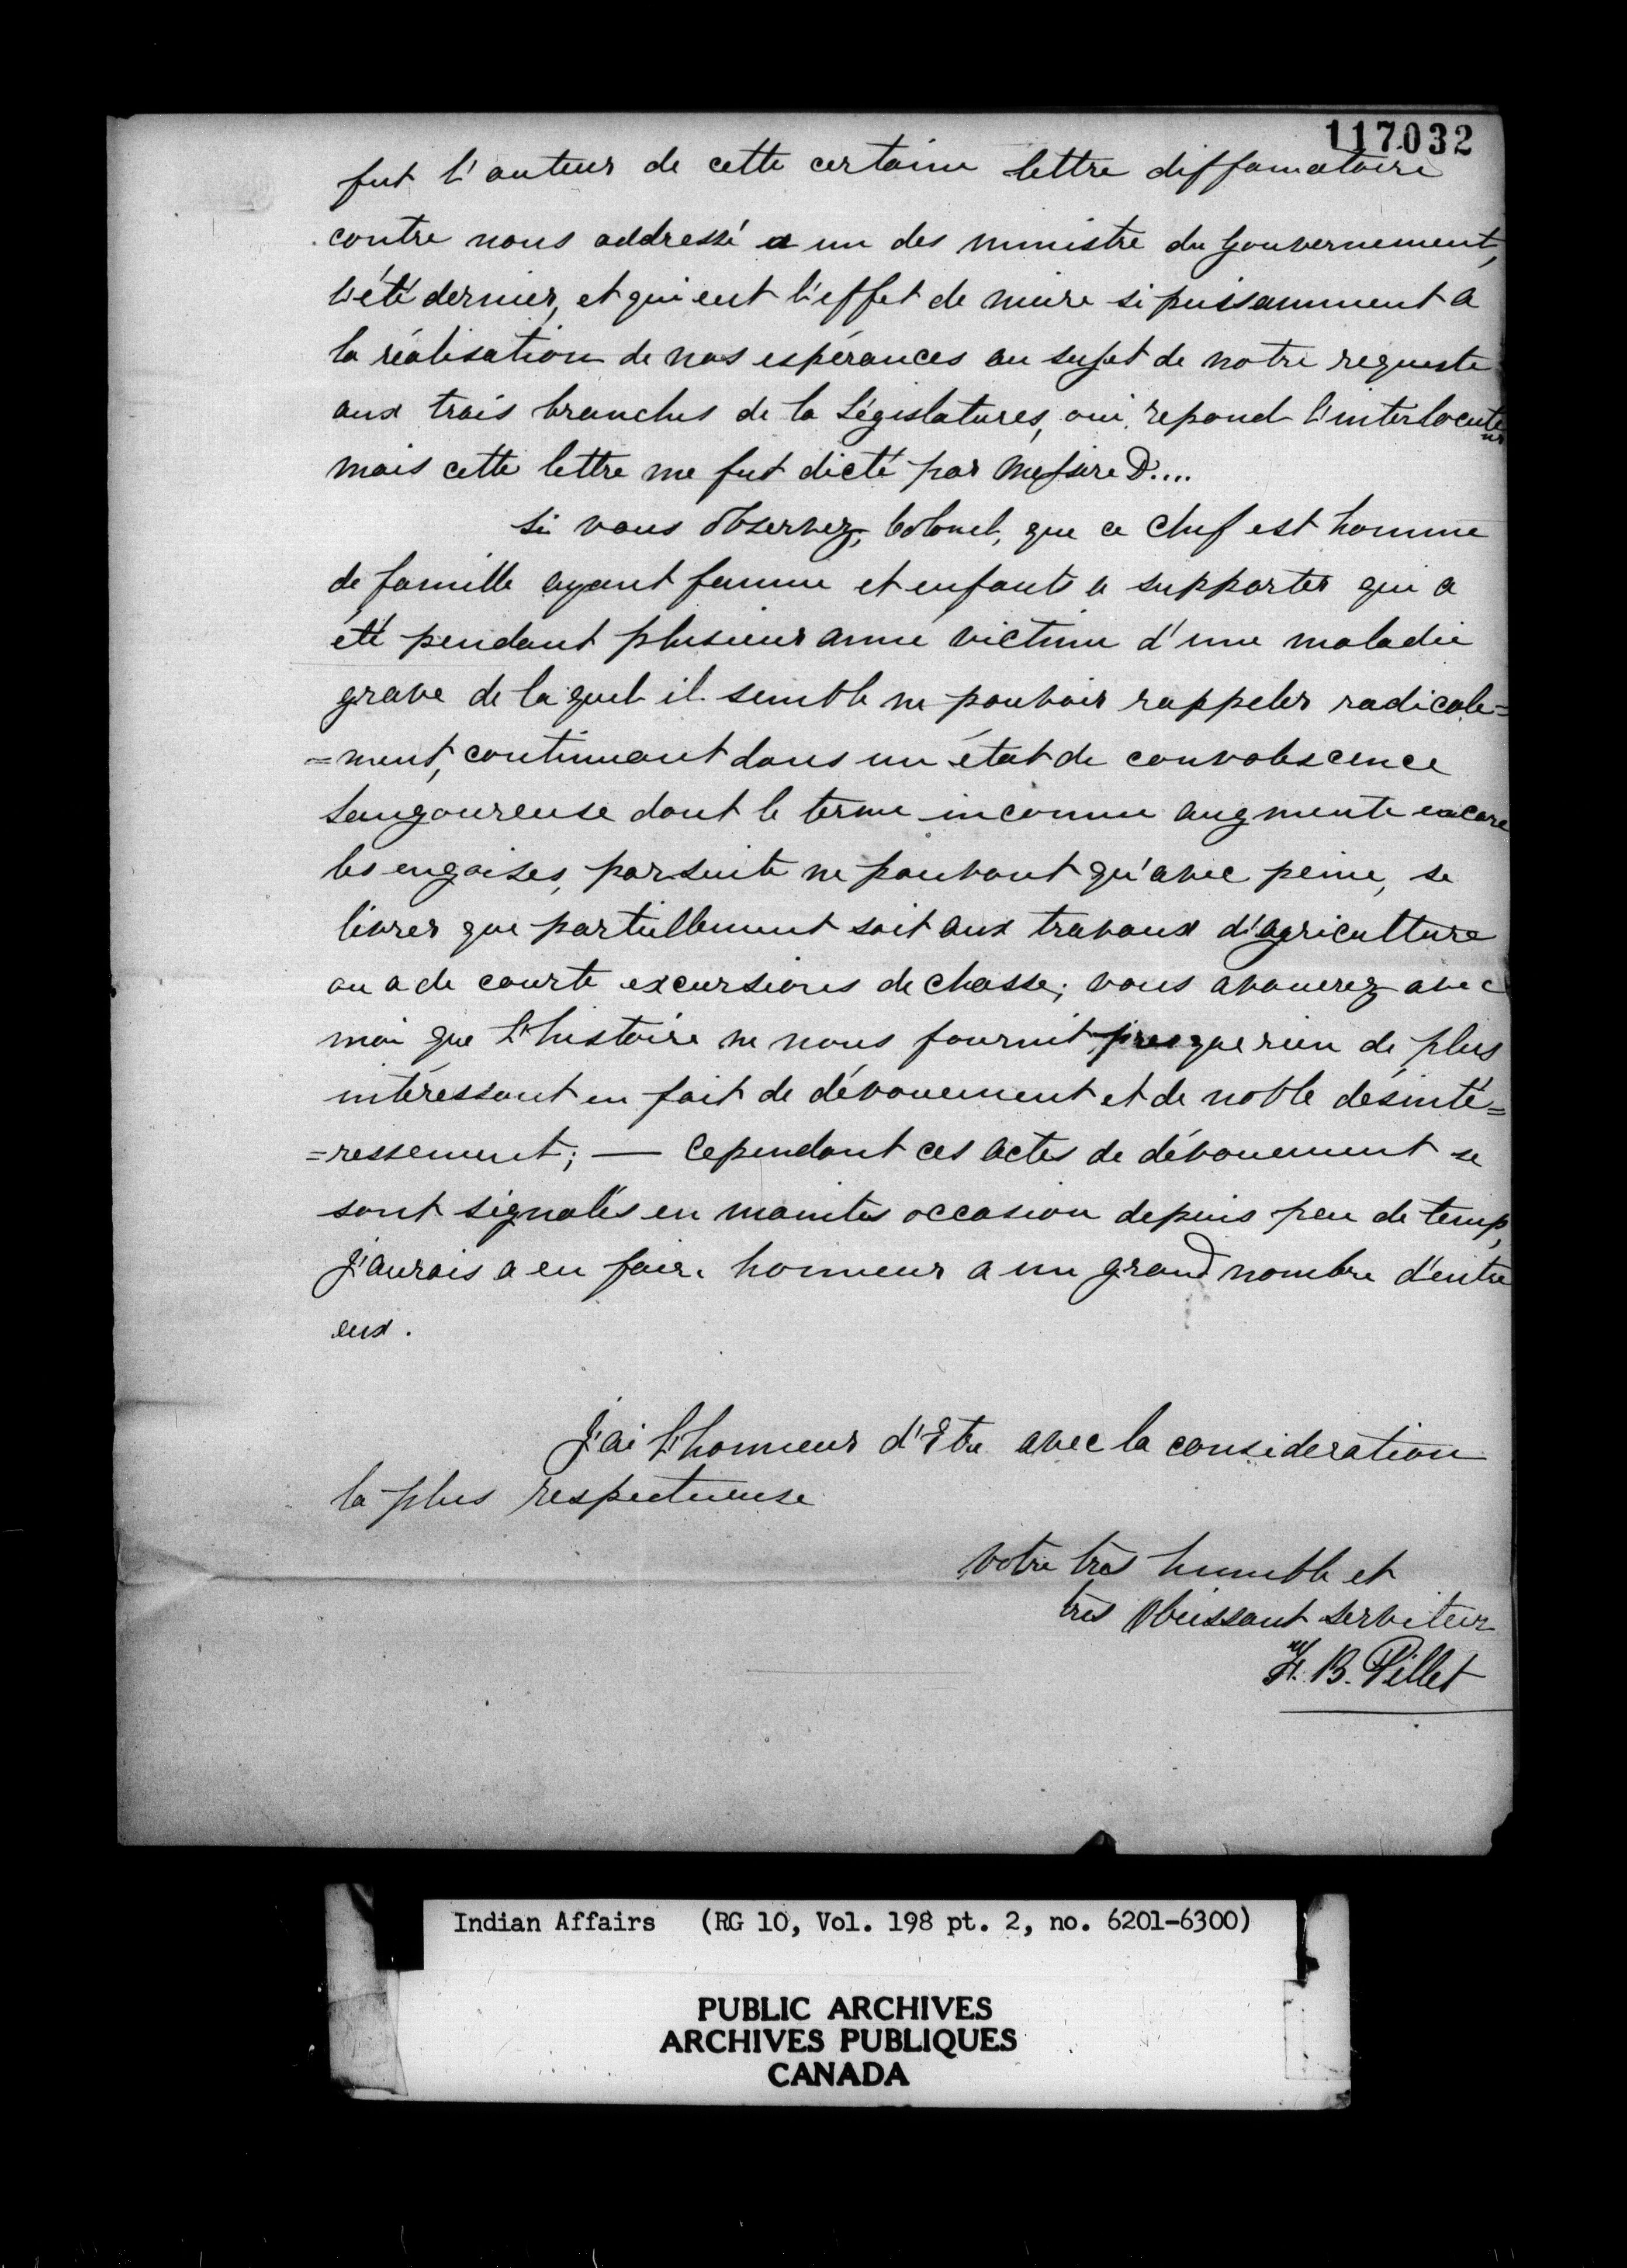 117032
fut l'auteur de cette certaine lettre diffamatoire
contre nous addressé a un des ministre du Gouvernement,
l'été dernier, et qui eut l'effet de nuire si puissamment a
la réalisation de nos espérances au sujet de notre requeste
aux trois branches de la Législatures, oui, repond l'interlocuteur
mais cette lettre me fut dicté par Messire D....
Si vous observez, Colonel, que ce Chef est homme
de famille ayant femme et enfants a supporter qui a
été pendant plusieur anné victime d'une maladie
grave de laquel il semble ne pouvoir rappeler radicale=
=ment, continuant dans un état de convalescence
langoureuse dont le terme inconnu augmente encore
les engoises, parsuite ne pouvant qu'avec peine, se
livrer que partiellement soit aux travaux d'agriculture
ou a de courte excursions de chasse; vous avouerez avec
moi que l'histoire ne nous fournit presque rien de plus
intéressant en fait de dévouement et de noble désinté=
=ressement; — Cependant ces actes de dévouement se
sont signalés en maintes occasion depuis peu de temp,
J'aurais a en faire honneur a un grand nombre d'entre
eux.
J'ai l'honneur d'Etre avec la consideration
la plus respectueuse
Votre très humble et
très Obéissant serviteur
H. B. Pillet
Indian Affairs (RG 10, Vol. 198 pt. 2, no. 6201-6300)
PUBLIC ARCHIVES
ARCHIVES PUBLIQUES
CANADA